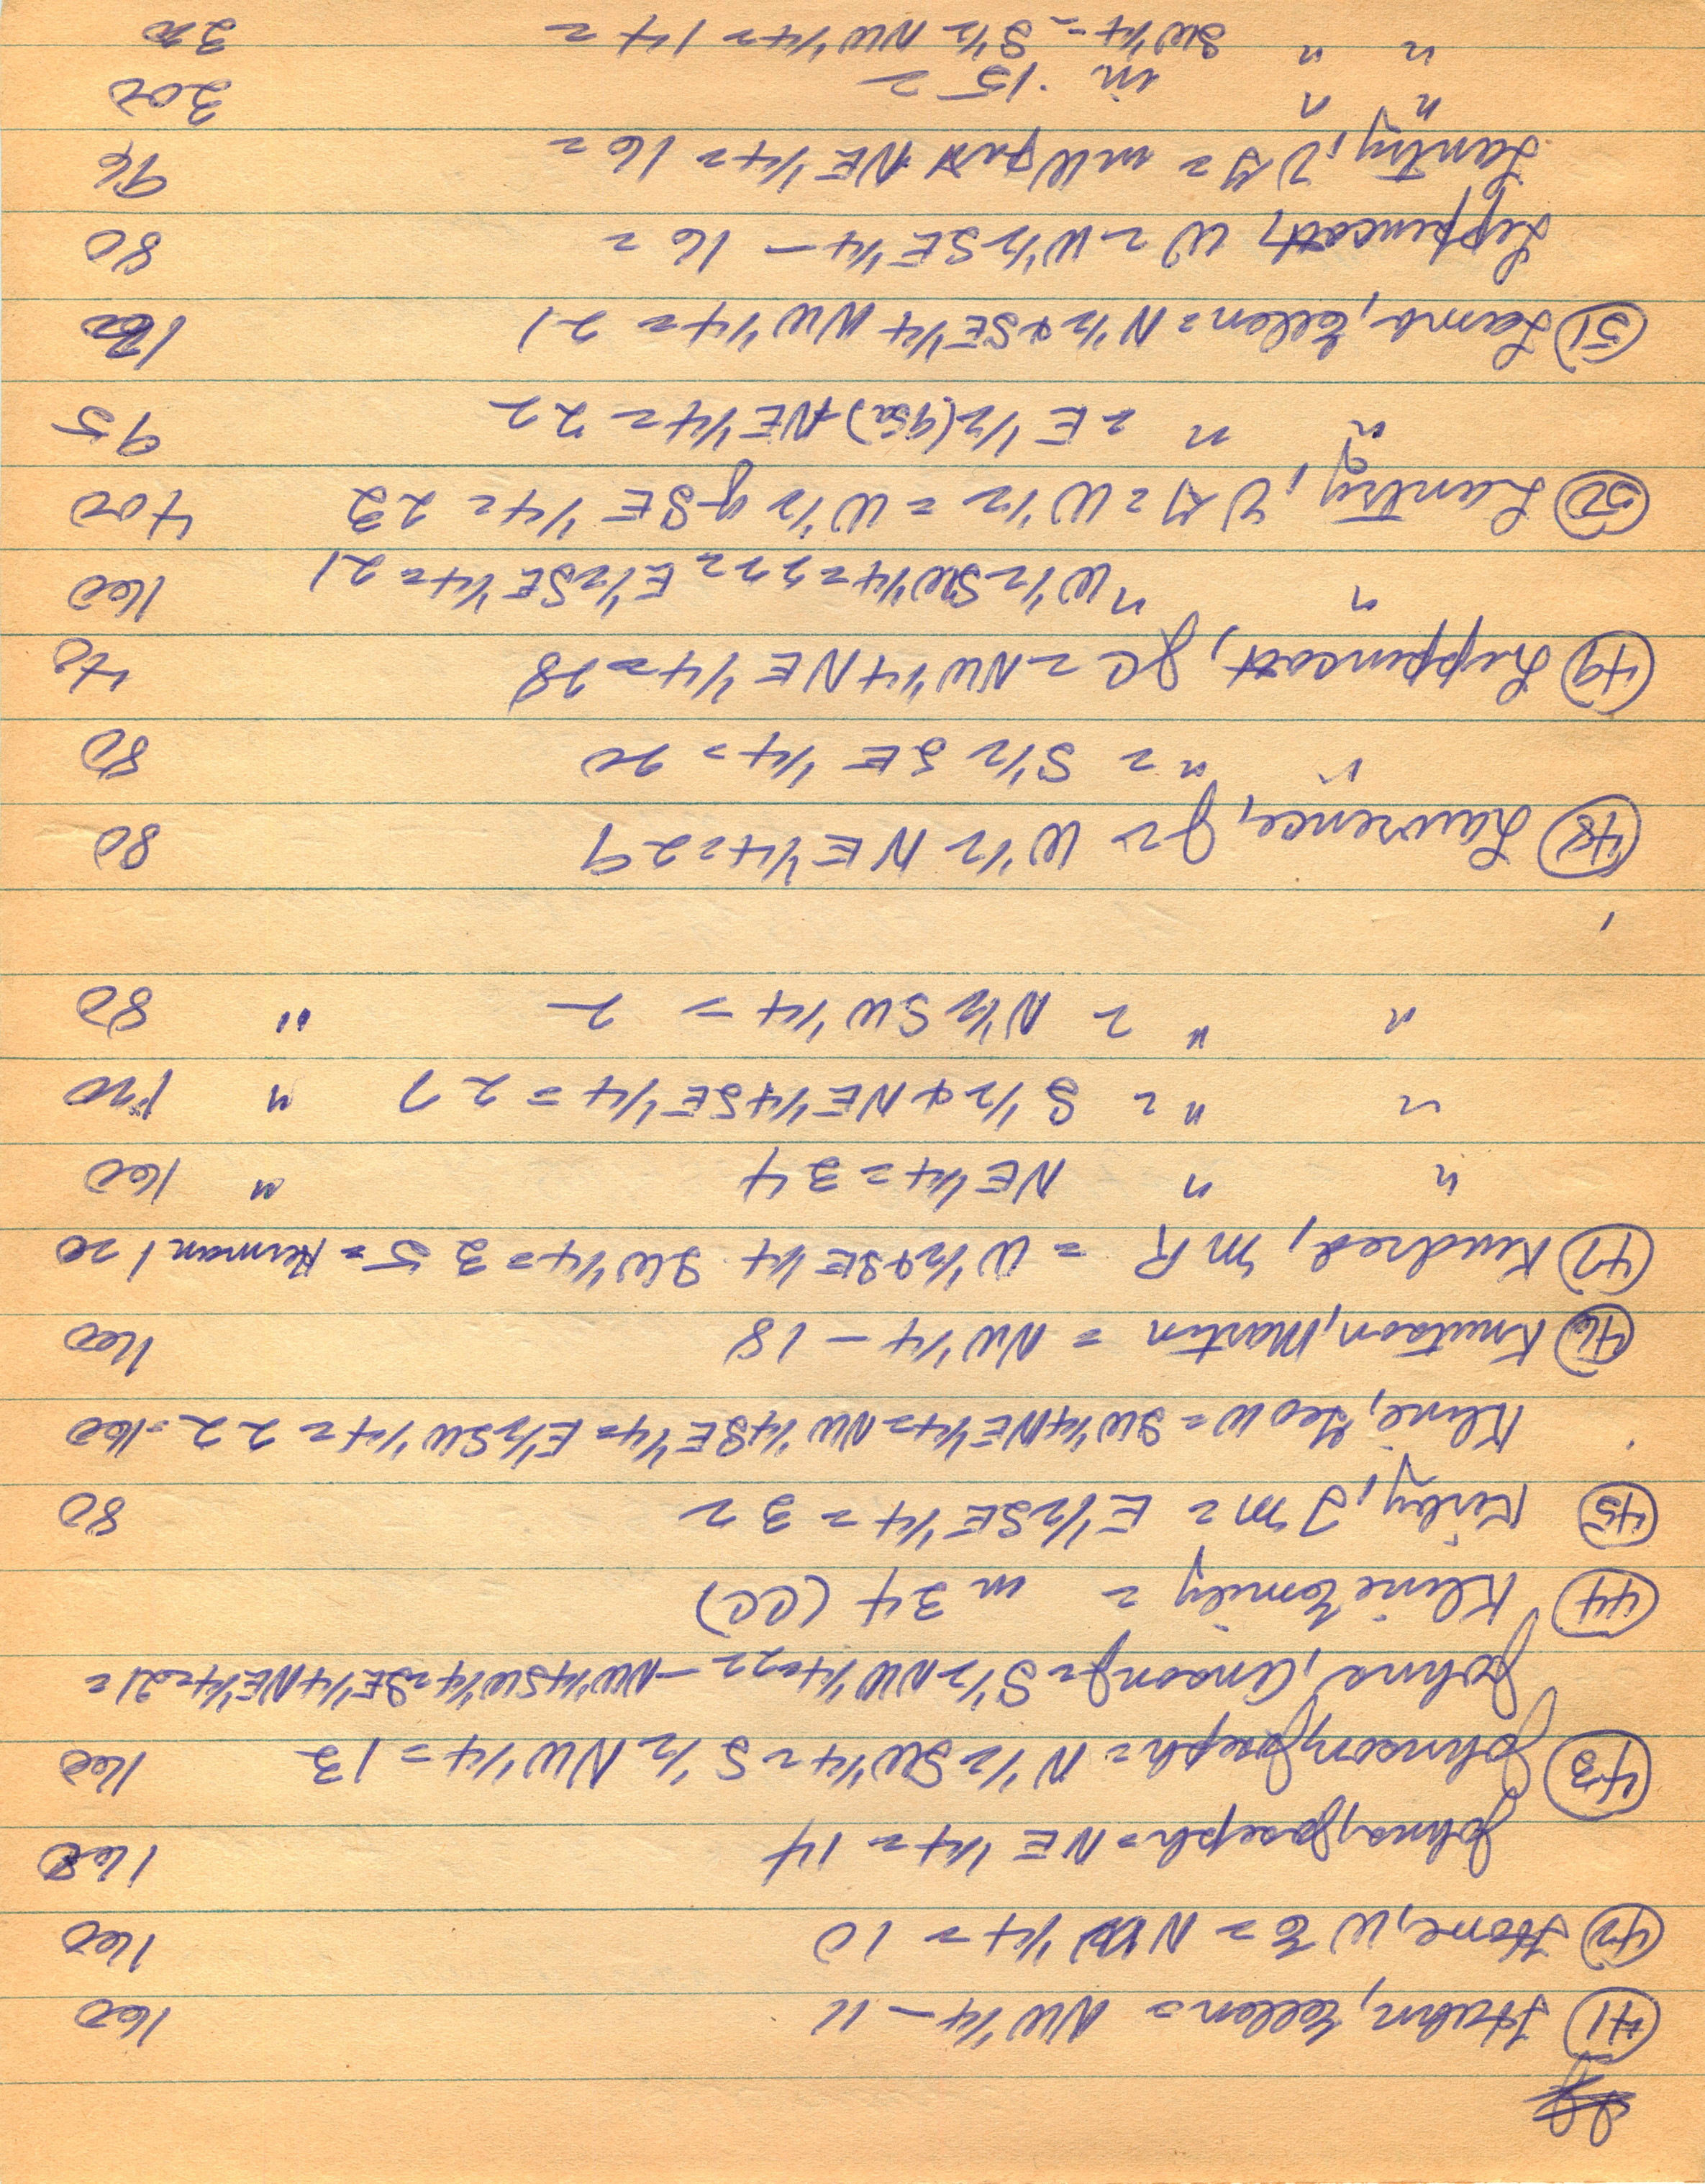 (41) Huhn, Ellen = NW 1/4 - 11 160
(42) Hone, W E = NW 1/4 = 10 160
Johns, Joseph = NE 1/4 = 14 160
(43) Johnson, Joseph = N 1/2 SW 1/4 = S 1/2 NW 1/4 = 13 160
Johns, Anson J = S 1/2 NW 1/4 = 22 - NW 1/4 SW 1/4 = SE 1/4 NE 1/4 = 21 =
(44) Kline Emily = in 34 (CC)
(45) Kirby, J M = E 1/2 SE 1/4 = 32 80
Kline, Geo W = SW 1/4 NE 1/4 = NW 1/4 SE 1/4 = E 1/2 SW 1/4 = 22 = 160
(46) Knutson, Martin = NW 1/4 - 18 160
(47) Kindred, M R = W 1/2 & SE 1/4 SW 1/4 = 35 = Herman 120
" " NE 1/4 = 34 " 160
" " = S 1/2 & NE 1/4 SE 1/4 = 27 " 120
" " = N 1/2 SW 1/4 = 2 " 80
(48) Lawrence, J = W 1/2 NE 1/4 = 29 80
" " = S 1/2 SE 1/4 = 20 80
(49) Lippencott, J C = NW 1/4 NE 1/4 = 28 40
" " W 1/2 SW 1/4 = 22 = E 1/2 SE 1/4 = 21 160
(50) Lantry, D Y = W 1/2 = W 1/2 of SE 1/4 = 23 400
" " = E 1/2 (95a) NE 1/4 = 22 95
(51) Lamb, Ellen = N 1/2 & SE 1/4 NW 1/4 = 21 120
Lippencott, W = W 1/2 SE 1/4 - 16 = 80
Lantry, D Y = mid part NE 1/4 = 16 = 96
" " in 15 = 200
" " SW 1/4 = S 1/2 NW 1/4 = 14 =